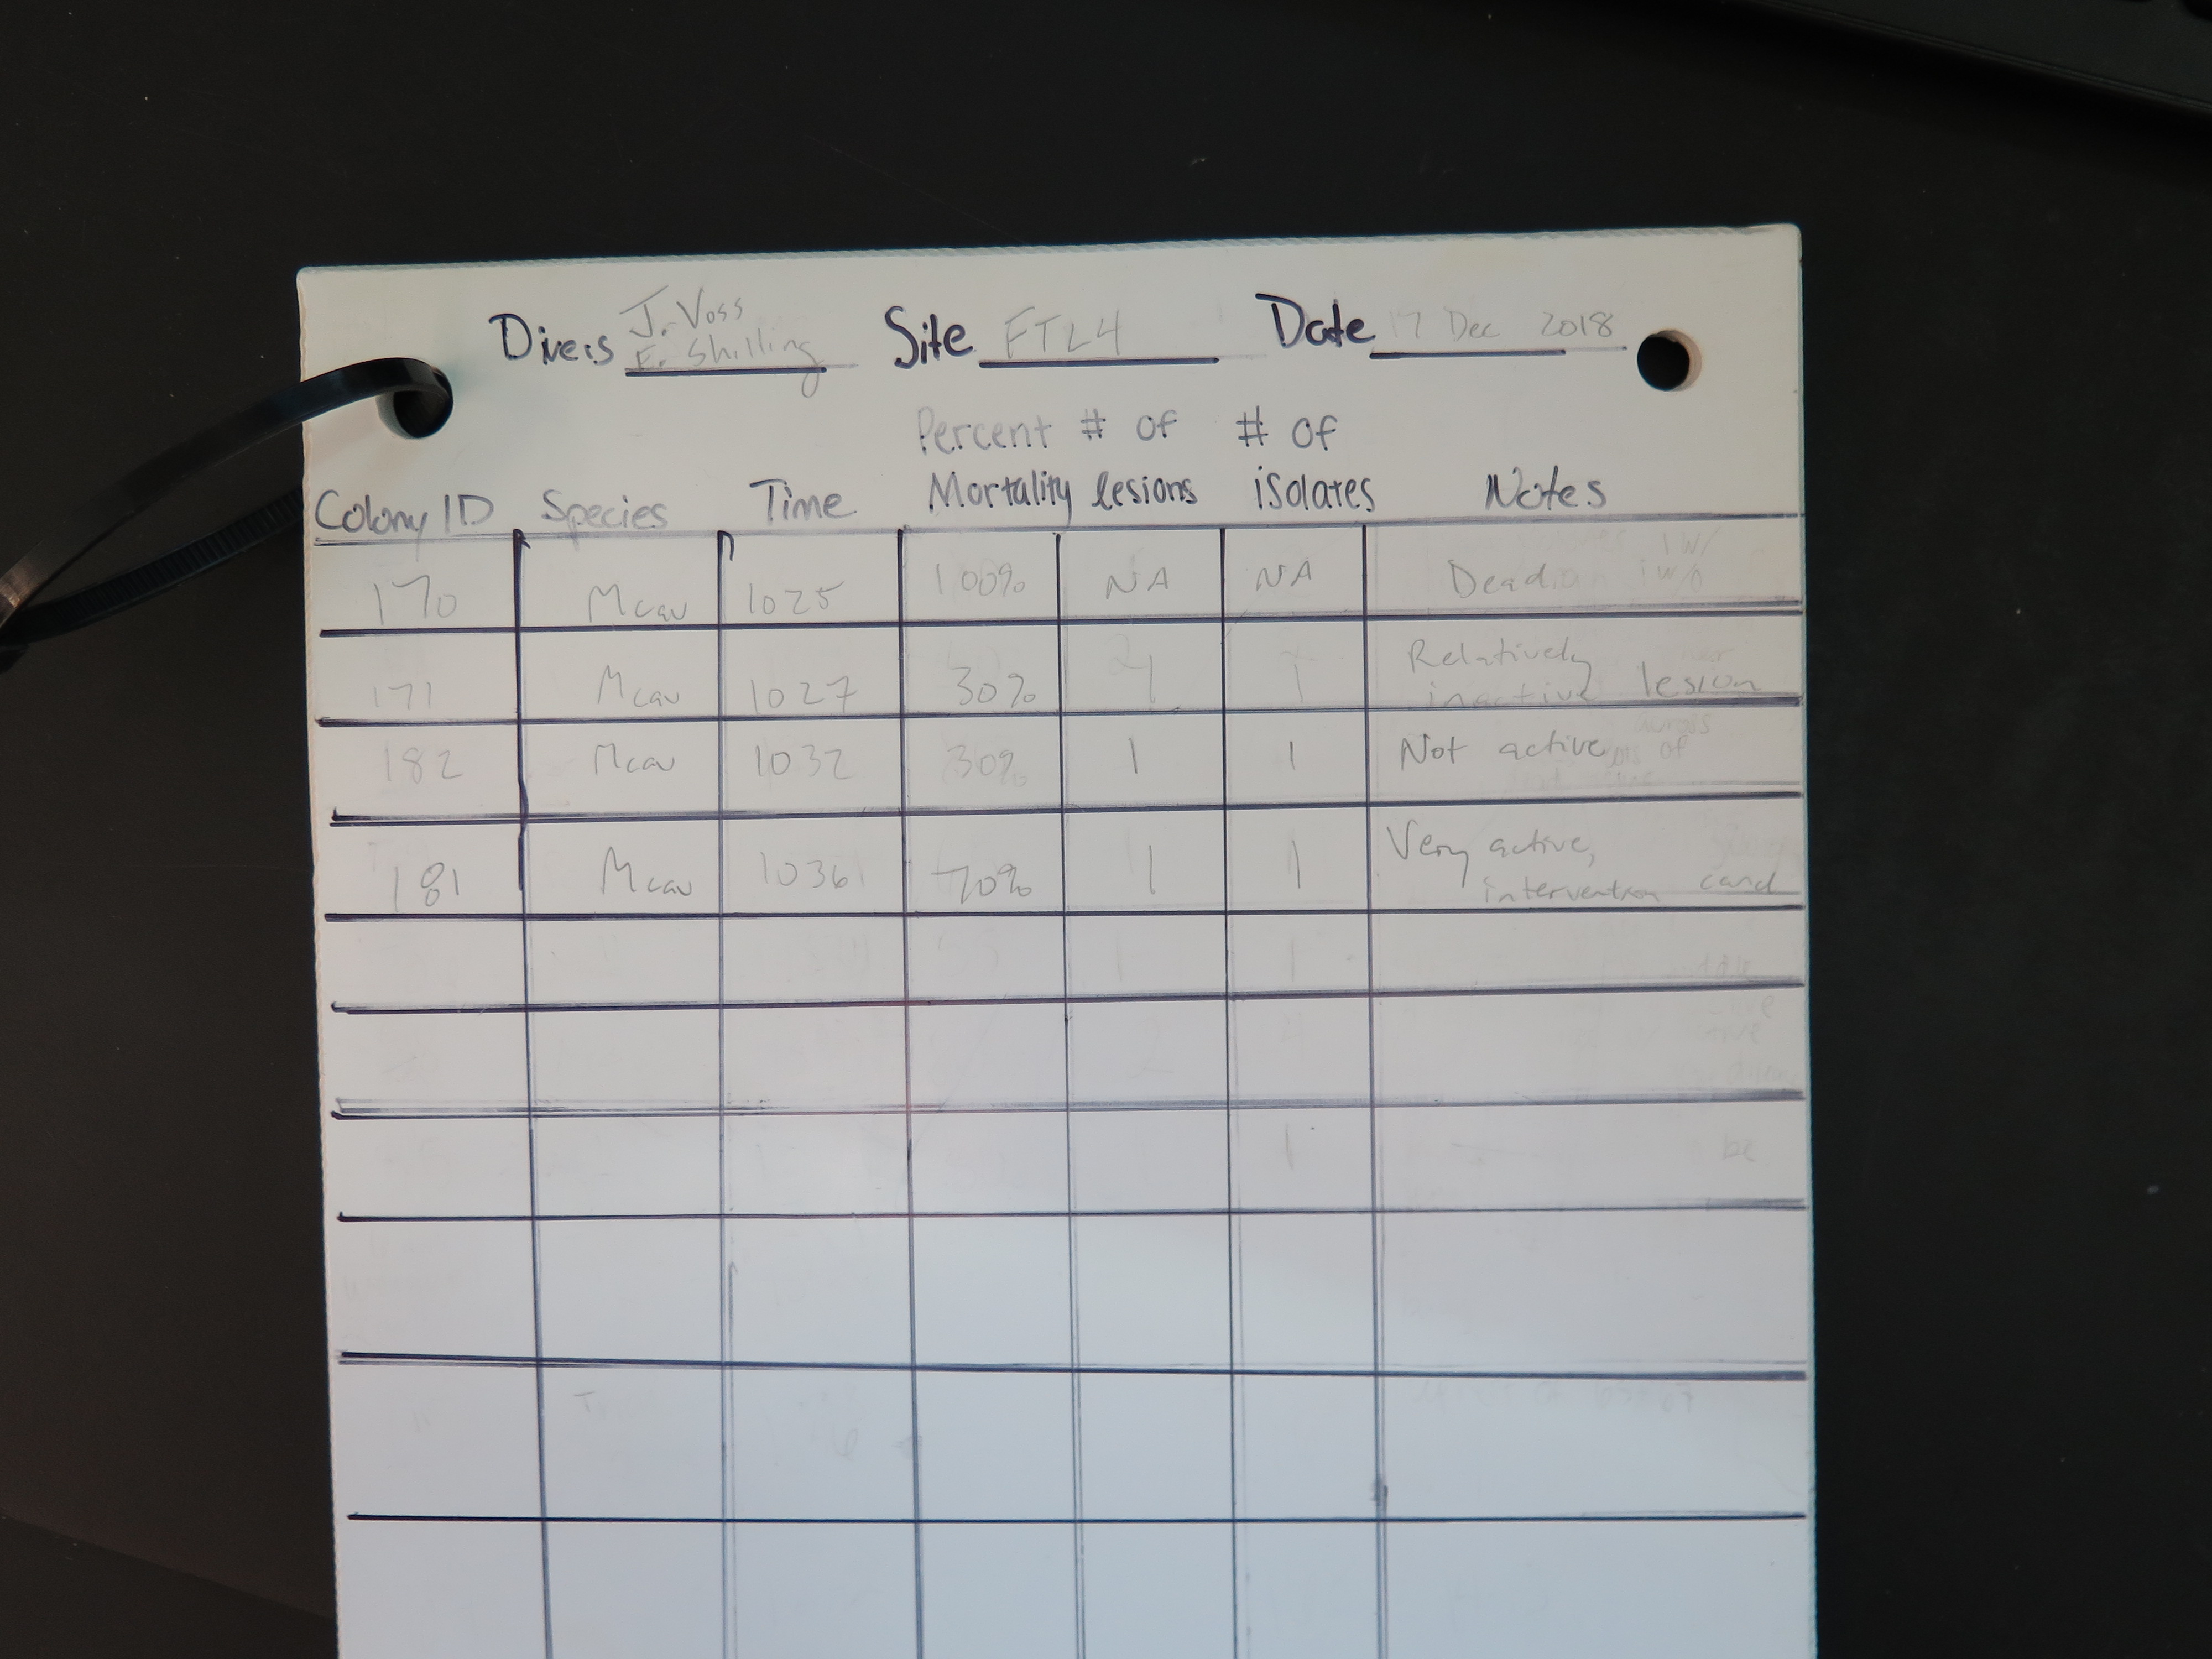 Divers J. Voss E. Shilling Site FTL4 Date 17 Dec 2018
Percent # of # of
Colony ID Species Time Mortality lesions isolates Notes
170 Mcav 1025 100% NA NA Dead
171 Mcav 1027 30% 1 1 Relatively inactive lesion
182 Mcav 1032 30% 1 1 Not active
181 Mcav 1036 70% 1 1 Very active, intervention cand